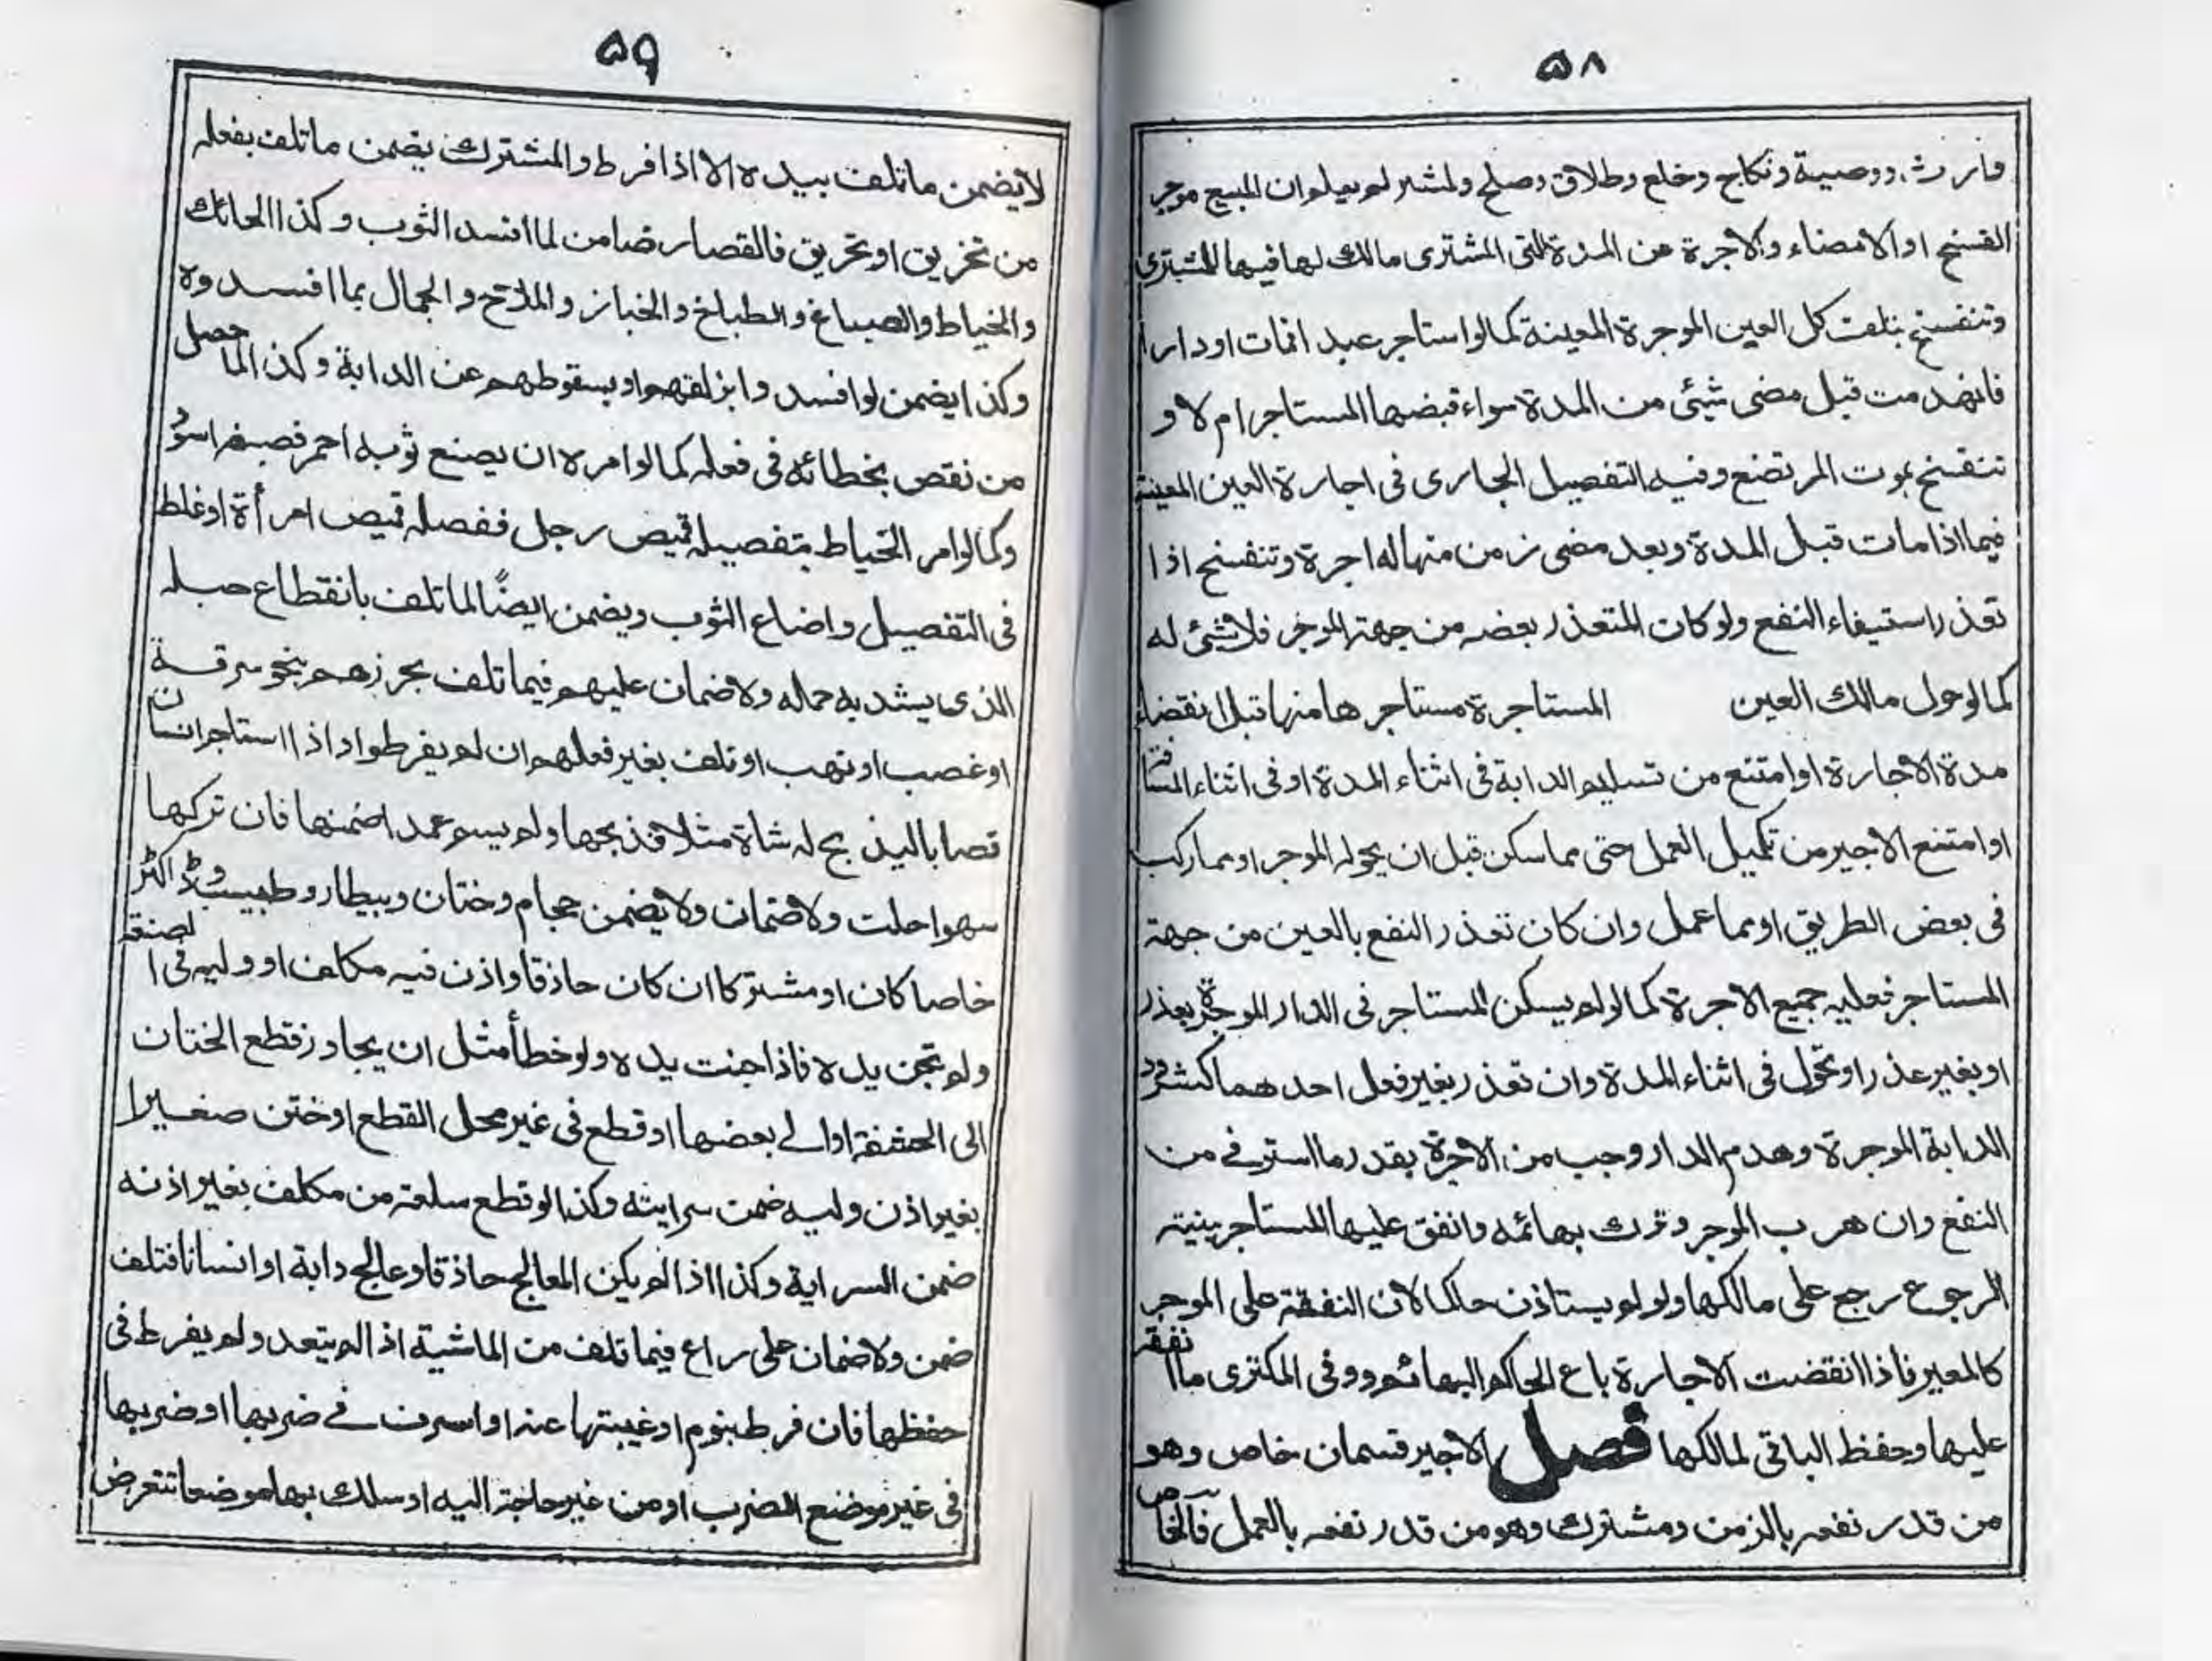 ۵۸
وارث ووصية ونكاح وخلع وطلاق وصلح ولمشتر لم يعلم ان المبيع موجر
الفسخ او الامضاء والاجرة من المدة التى المشترى مالك لها فيها للمشترى
وتنفسخ بتلف كل العين الموجرة المعينة كما لو استاجر عبدا فمات او دارا
فانهدمت قبل مضى شيئ من المدة سواء قبضها المستاجر ام لا و
تنفسخ بموت المرتضع وفيه التفصيل الجارى فى اجارة العين المعينة
فيما اذا مات قبل المدة وبعد مضى زمن منها له اجرة وتنفسخ اذا
تعذر استيفاء النفع ولو كان المتعذر بعضه من جهة الموجر فلا شيئ له
كما لو حول مالك العين المستاجرة مستاجرها منها قبل انقضاء
مدة الاجارة او امتنع من تسليم الدابة فى اثناء المدة او فى اثناء المسافة
او امتنع الاجير من تكميل العمل حتى مما سكن قبل ان يحوله الموجر او مما ركب
فى بعض الطريق او مما عمل وان كان تعذر النفع بالعين من جهة
المستاجر فعليه جميع الاجرة كما لو لم يسكن المستاجر فى الدار الموجرة بعذر
او بغير عذر او تحول فى اثناء المدة وان تعذر بغير فعل احدهما كشرود
الدابة الموجرة وهدم الدار وجب من الاجرة بقدر ما استوفى من
النفع وان هرب الموجر وترك بهائمه وانفق عليها المستاجر بنية
الرجوع رجع على مالكها ولو لم يستاذن حاكما لان النفقة على الموجر
كالمعير فاذا انقضت الاجارة باع الحاكم البهائم ووفى المكترى ما انفقه
عليها وحفظ الباقى لمالكها فصل الاجير قسمان خاص وهو
من قدر نفعه بالزمن ومشترك وهو من قدر نفعه بالعمل فالخاص
۵۹
لا يضمن ما تلف بيده الا اذا فرط والمشترك يضمن ما تلف بفعله
من تخريق او تحريق فالقصار ضامن لما افسد الثوب وكذا الحائك
والخياط والصباغ والطباخ والخباز والملاح والجمال بما افسدوه
وكذا يضمن لو افسد وا بزلقهم او بسقوطهم عن الدابة وكذا لما حصل
من نقص بخطائه فى فعله كما لو امره ان يصنع ثوبه احمر فصبغه اسود
وكما لو امر الخياط بتفصيله قميص رجل ففصله قميص امرأة او غلط
فى التفصيل واضاع الثوب ويضمن ايضًا لما تلف بانقطاع حبله
الذى يشد به حماله ولا ضمان عليهم فيما تلف بحرزهم بنحو سرقة
او غصب او نهب او تلف بغير فعلهم ان لم يفرطوا واذا استاجر انسان
قصابا ليذبح له شاة مثلا فذبحها ولم يسم عمدا ضمنها فان تركها
سهوا حلت ولا ضمان ولا يضمن حجام وختان وبيطار وطبيب وڈاكٹر
خاصا كان او مشتركا ان كان حاذقا واذن فيه مكلف او وليه فى الصنعة
ولم تجن يده فاذا جنت يده ولو خطأ مثل ان يجاوز قطع الختان
الى الحشفة او الى بعضها او قطع فى غير محل القطع او ختن صغيرا
بغير اذن وليه ضمن سرايته وكذا لو قطع سلعة من مكلف بغير اذنه
ضمن السراية وكذا اذا لم يكن المعالج حاذقا وعالج دابة او انسانا فتلف
ضمن ولا ضمان على راع فيما تلف من الماشية اذا لم يتعد ولم يفرط فى
حفظها فان فرط بنوم او غيبتها عنه او اسرف فى ضربها او ضربها
فى غير موضع الضرب او من غير حاجة اليه او سلك بها موضعا تتعرض